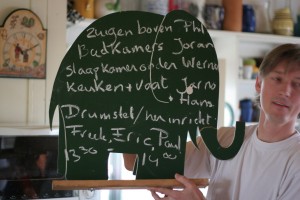 zuigen boven Phl
Badkamers Joran
slaapkamer onder Werna
keuken + vaat Jorno
+ Hans
Drumstel/huinricht
Freek, Eric, Paul
13 30 = 14 00